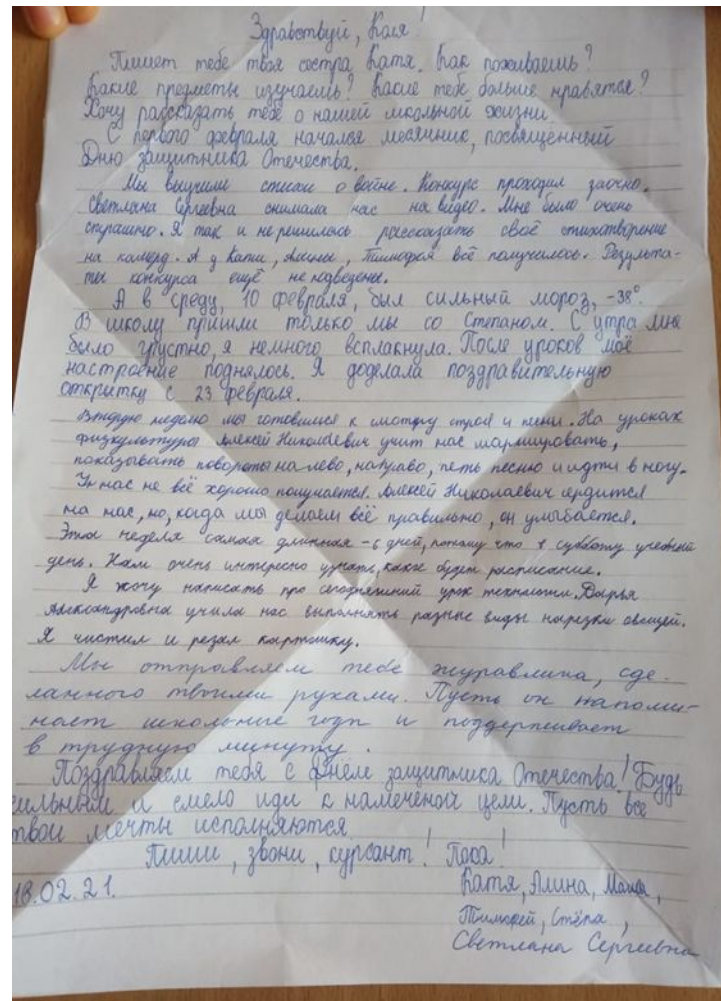 Здравствуй, Кася!
Пишет тебе твоя сестра Катя. Как поживаешь?
Какие предметы изучаешь? Какие тебе больше нравятся?
Хочу рассказать тебе о нашей школьной жизни.
С первого февраля начался месячник, посвященный
Дню защитника Отечества.
Мы выучили стихи о войне. Конкурс проходил заочно.
Светлана Сергеевна снимала нас на видео. Мне было очень
страшно. Я так и не решилась рассказать своё стихотворение
на камеру. А у Кати, Алины, Тимофея всё получилось. Результа-
ты конкурса ещё не подведены.
А в среду, 10 февраля, был сильный мороз, -38°.
В школу пришли только мы со Степаном. С утра мне
было грустно, я немного всплакнула. После уроков моё
настроение поднялось. Я доделала поздравительную
открытку с 23 февраля.
Вторую неделю мы готовимся к смотру строя и песни. На уроках
физкультуры Алексей Николаевич учит нас маршировать,
показывать повороты налево, направо, петь песню и идти в ногу.
У нас не всё хорошо получается. Алексей Николаевич сердится
на нас, но, когда мы делаем всё правильно, он улыбается.
Эта неделя самая длинная - 6 дней, потому что в субботу учебный
день. Нам очень интересно узнать, какое будет расписание.
Я хочу написать про сегодняшний урок технологии. Дарья
Александровна учила нас выполнять разные виды нарезки овощей.
Я чистил и резал картошку.
Мы отправляем тебе журавлика, сде-
ланного твоими руками. Пусть он напоми-
нает школьные годы и поддерживает
в трудную минуту.
Поздравляем тебя с Днём защитника Отечества! Будь
сильным и смело иди к намеченой цели. Пусть все
твои мечты исполняются.
Пиши, звони, курсант! Пока!
18.02.21.
Катя, Алина, Маша,
Тимофей, Стёпа,
Светлана Сергеевна